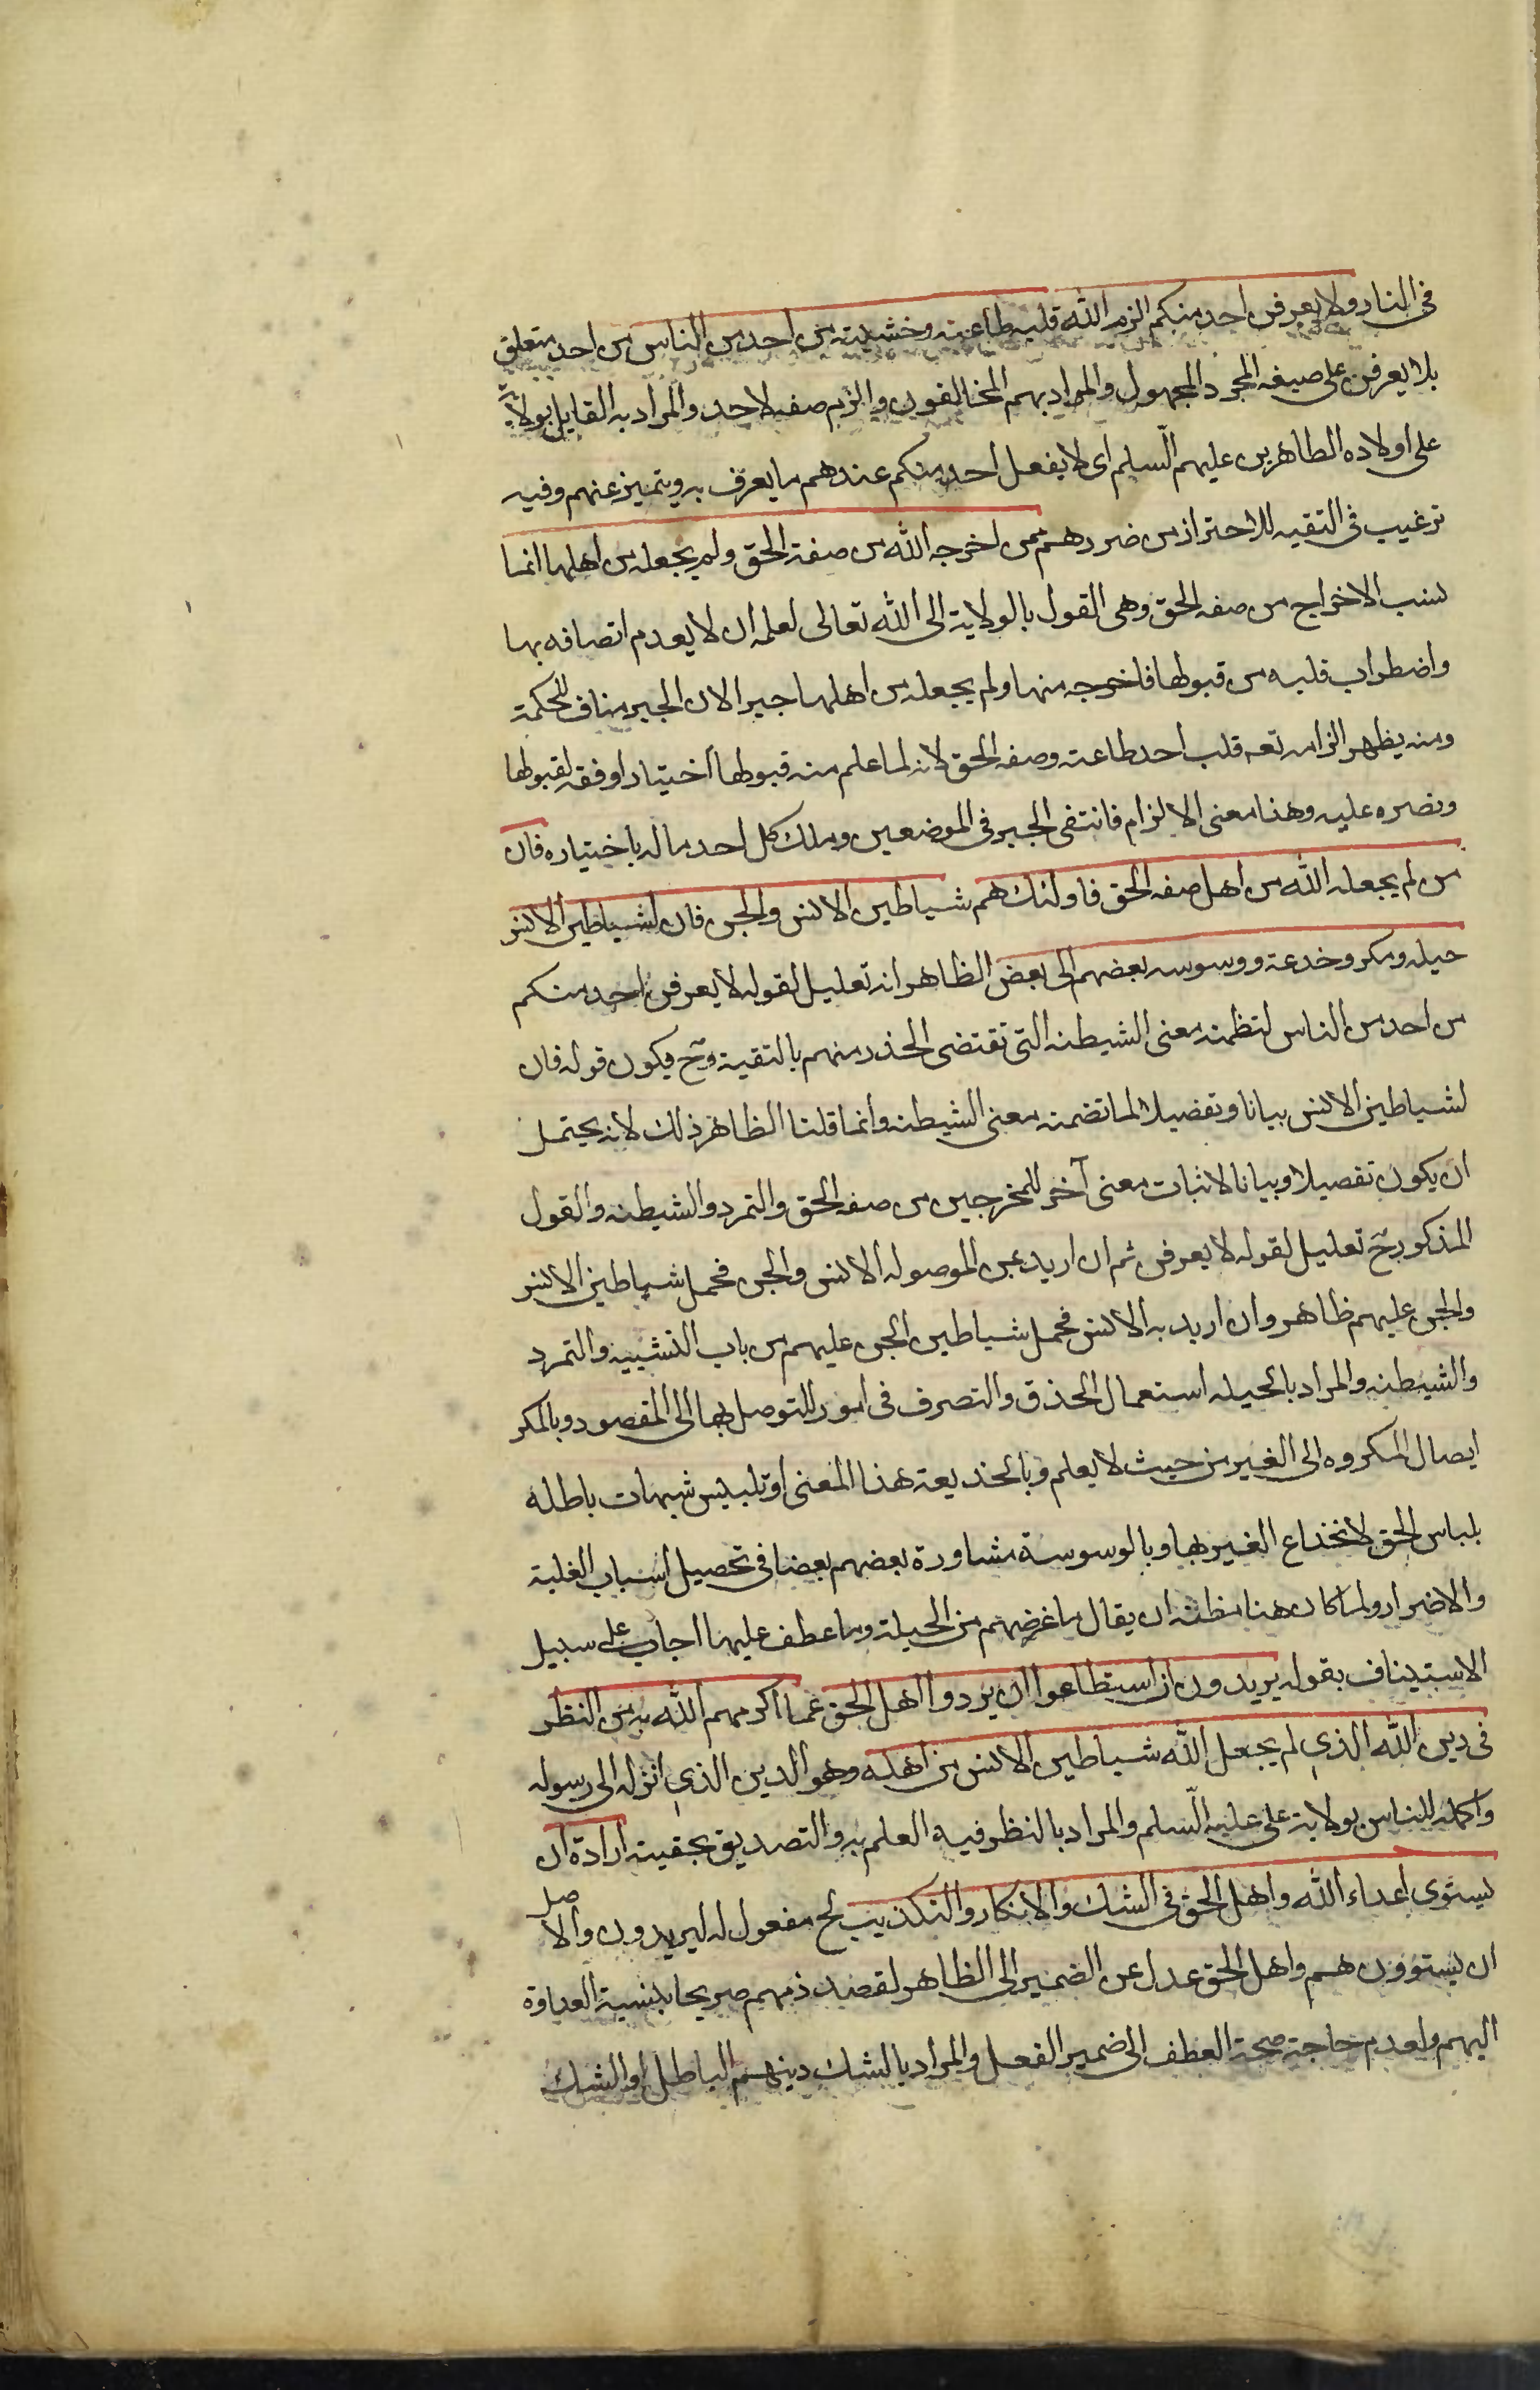 في النار ولا يعرفن احد منكم الزم الله قلبه طاعته وخشيته من احد من الناس من احد متعلق
بلا يعرفن على صيغه المجرد المجهول والمراد بهم المخالفون والزم صفه لاحد والمراد به القايل بولاية
على اولاده الطاهرين عليهم السلم اى لا يفعل احد منكم عندهم ما يعرف به ويتميز عنهم وفيه
ترغيب فى التقيه للاحتراز من ضررهم ممن اخرجه الله من صفة الحق ولم يجعله من اهلها انما
نسب الاخراج من صفه الحق وهى القول بالولاية الى الله تعالى لعلمه ان لا يعدم اتصافه بها
واضطراب قلبه من قبولها فاخرجه منها ولم يجعله من اهلها جبرا لان الجبر مناف للحكمة
ومنه يظهر الزامه تعه قلب احد طاعته وصفه الحق لانه لما علم منه قبولها اختيارا وفقه لقبولها
ونصره عليه وهذا معنى الالزام فانتفى الجبر فى الموضعين وملك كل احد ماله باختياره فان
من لم يجعله الله من اهل صفه الحق فاولئك هم شياطين الانس والجن فان لشياطين الانس
حيله ومكر وخدعة ووسوسه بعضهم الى بعض الظاهر انه تعليل لقوله لا يعرفن احد منكم
من احد من الناس لتظمنه معنى الشيطنه التى تقتضى الحذر منهم بالتقية وح فيكون قوله فان
لشياطين الانس بيانا وتفصيلا لما تضمنه معنى الشيطنه وانما قلنا الظاهر ذلك لانه يحتمل
ان يكون تفصيلا وبيانا لاثبات معنى آخر للمخرجين من صفه الحق والتمرد والشيطنه والقول
المذكور ح تعليل لقوله لا يعرفن ثم ان اريد عن الموصوله الانس والجن فحمل شياطين الانس
والجن عليهم ظاهر وان اريد به الانس فحمل شياطين الجن عليهم من باب التشبيه والتمرد
والشيطنه والمراد بالحيله استعمال الحذق والتصرف فى امور للتوصل بها الى المقصود وبالمكر
ايصال المكروه الى الغير من حيث لا يعلم وبالخديعة هذا المعنى او تلبيس شبهات باطله
بلباس الحق لانخداع الغير بها وبالوسوسة مشاورة بعضهم بعضا فى تحصيل اسباب الغلبة
والاضرار ولما كان هنا مظنه ان يقال ما غرضهم من الحيلة وما عطف عليها اجاب على سبيل
الاستيناف بقوله يريدون ان استطاعوا ان يردوا اهل الحق عما اكرمهم الله به من النظر
فى دين الله الذي لم يجعل الله شياطين الانس من اهله وهو الدين الذي انزله الى رسوله
واكمله للناس بولاية على عليه السلم والمراد بالنظر فيه العلم به والتصديق بحقيته ارادة ان
يستوى اعداء الله واهل الحق فى الشك والانكار والتكذيب لح مفعول له ليريدون والاصل
ان يستوون هم واهل الحق عدل عن الضمير الى الظاهر لقصد ذمهم صريحا بنسبة العداوة
اليهم ولعدم حاجة صحة العطف الى ضمير الفعل والمراد بالشك دينهم الباطل او الشك